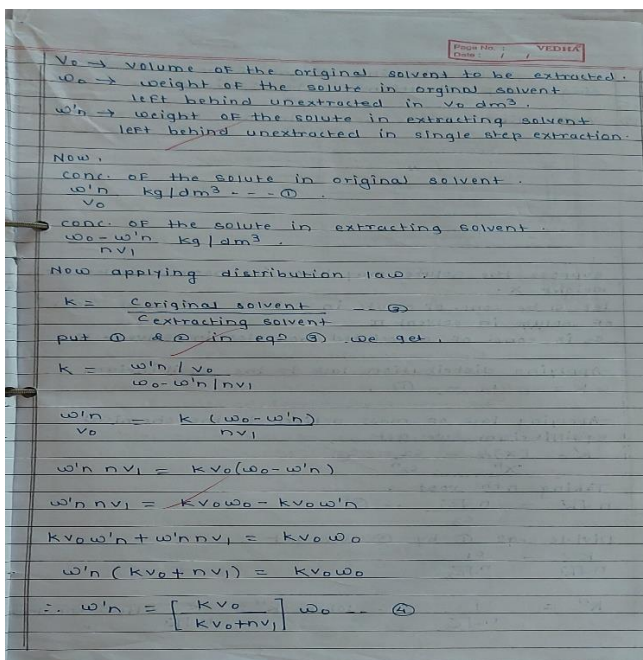 Page No. :
VEDHA
Date : / /
V₀ → volume of the original solvent to be extracted.
ω₀ → weight of the solute in orginal solvent
left behind unextracted in V₀ dm³.
ω'n → weight of the solute in extracting solvent
left behind unextracted in single step extraction.
Now,
conc. of the solute in original solvent.
ω'n / V₀ kg/dm³ --- ①
conc. of the solute in extracting solvent.
ω₀ - ω'n / nV₁ kg/dm³.
Now applying distribution law.
K = Coriginal solvent / Cextracting solvent -- ③
put ① & ② in eqⁿ ③ we get,
K = ω'n / V₀ / ω₀ - ω'n / nV₁
ω'n / V₀ = K (ω₀ - ω'n) / nV₁
ω'n nV₁ = KV₀(ω₀ - ω'n)
ω'n nV₁ = KV₀ω₀ - KV₀ω'n
KV₀ω'n + ω'n nV₁ = KV₀ω₀
ω'n (KV₀ + nV₁) = KV₀ω₀
∴ ω'n = [KV₀ / KV₀+nV₁] ω₀ -- ④